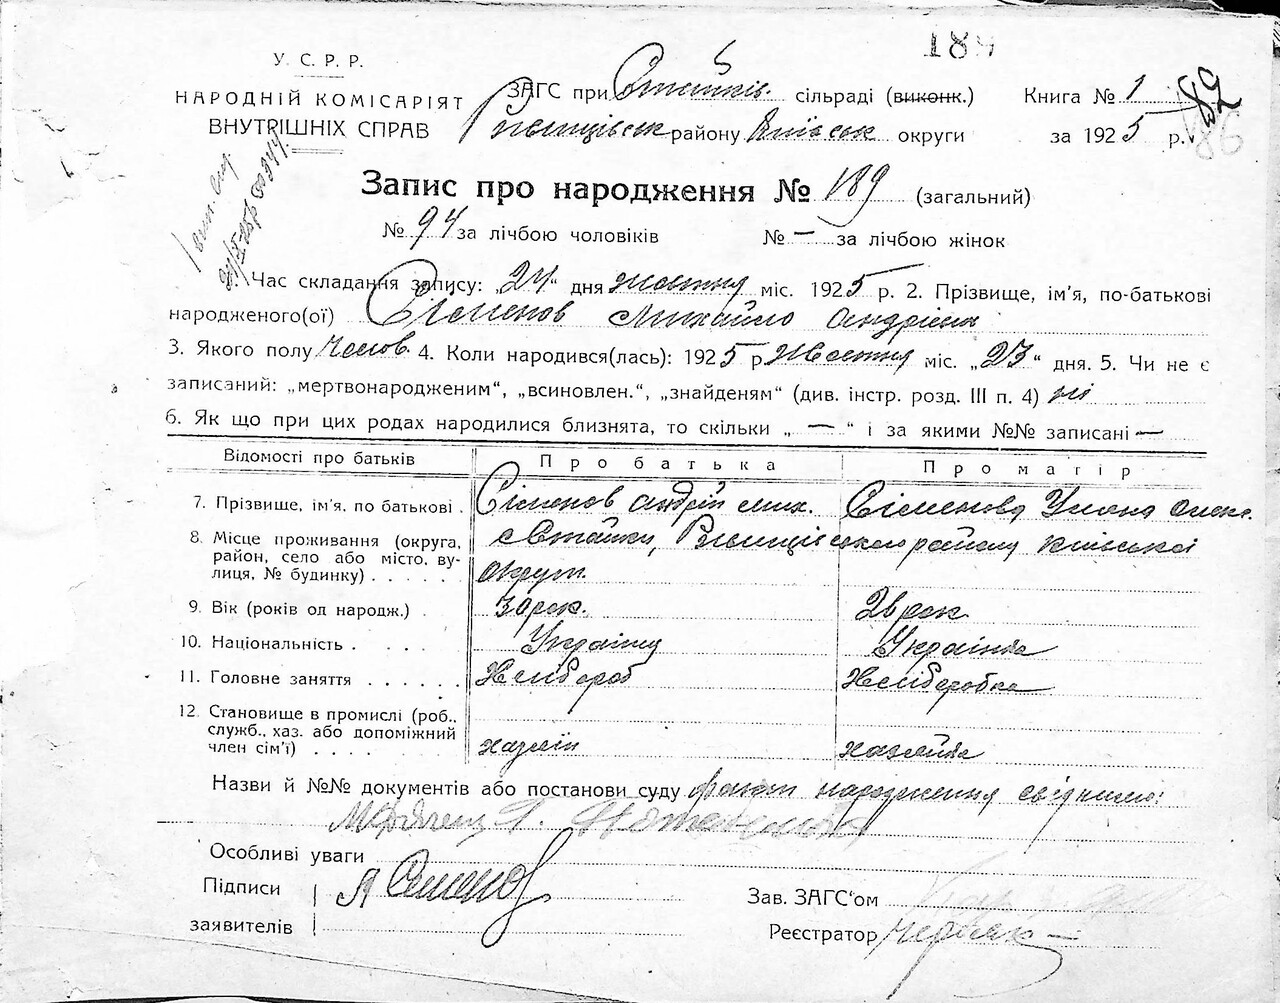 189
У. С. Р. Р.
НАРОДНІЙ КОМІСАРІЯТ
ВНУТРІШНІХ СПРАВ
ЗАГС при сільраді (виконк.) Книга № 1
району Київськ округи за 1925 р.
86
Запис про народження № 189 (загальний)
№ 94 за лічбою чоловіків № — за лічбою жінок
Час складання запису: „24“ дня жовтня міс. 1925 р. 2. Прізвище, ім'я, по-батькові
народженого(ої) Сіменов Михайло
3. Якого полу Чолов. 4. Коли народився(лась): 1925 р. жовтня міс. „23“ дня. 5. Чи не є
записаний: „мертвонародженим“, „всиновлен.“, „знайденям“ (див. інстр. розд. III п. 4) ні
6. Як що при цих родах народилися близнята, то скільки „ — “ і за якими №№ записані —
Відомості про батьків Про батька Про матір
7. Прізвище, ім'я, по батькові . Сіменов Андрій Мих. Сіменова Уляна Олекс.
8. Місце проживання (округа, с Стайки, району Київської
район, село або місто, ву-
лиця, № будинку) . . . . . округи.
9. Вік (років од народж.) . 30 рок. 26 рок
10. Національність . . . . Українц Українка
11. Головне заняття . . . . . . Хлібороб Хліборобка
12. Становище в промислі (роб.,
служб., хаз. або допоміжний
член сім'ї) . . . . хазяїн хазяйка
Назви й №№ документів або постанови суду факт народження свідчимо:
Особливі уваги
Підписи Зав. ЗАГС'ом
заявителів Реєстратор